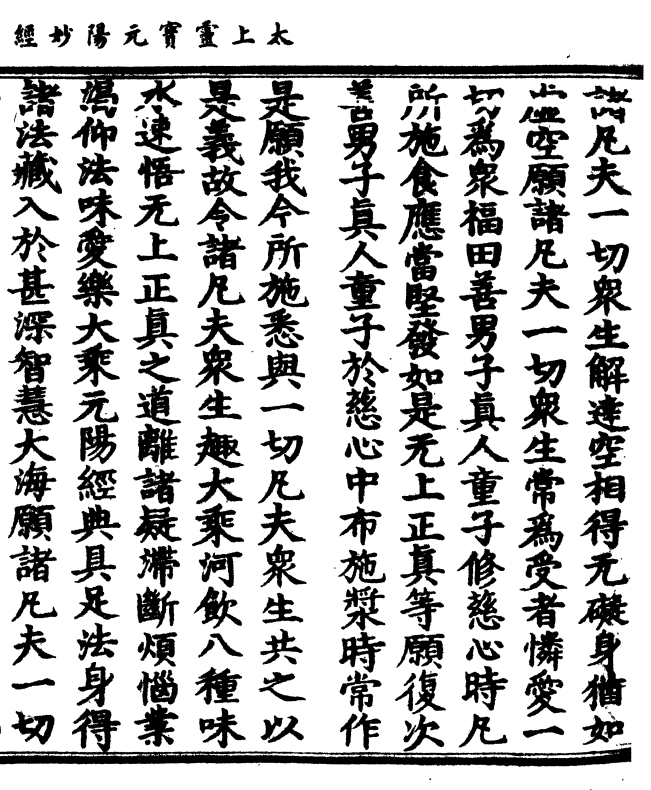 太上靈寶元陽妙經
諸凡夫一切衆生解達空相得无礙身猶如
虛空願諸凡夫一切衆生常爲受者憐愛一
切爲衆福田善男子真人童子修慈心時凡
所施食應當堅發如是无上正真等願復次
善男子真人童子於慈心中布施漿時常作
是願我今所施悉與一切凡夫衆生共之以
是義故令諸凡夫衆生趣大乘河飲八種味
水速悟无上正真之道離諸疑滯斷煩惱業
渴仰法味愛樂大乘元陽經典具足法身得
諸法藏入於甚深智慧大海願諸凡夫一切